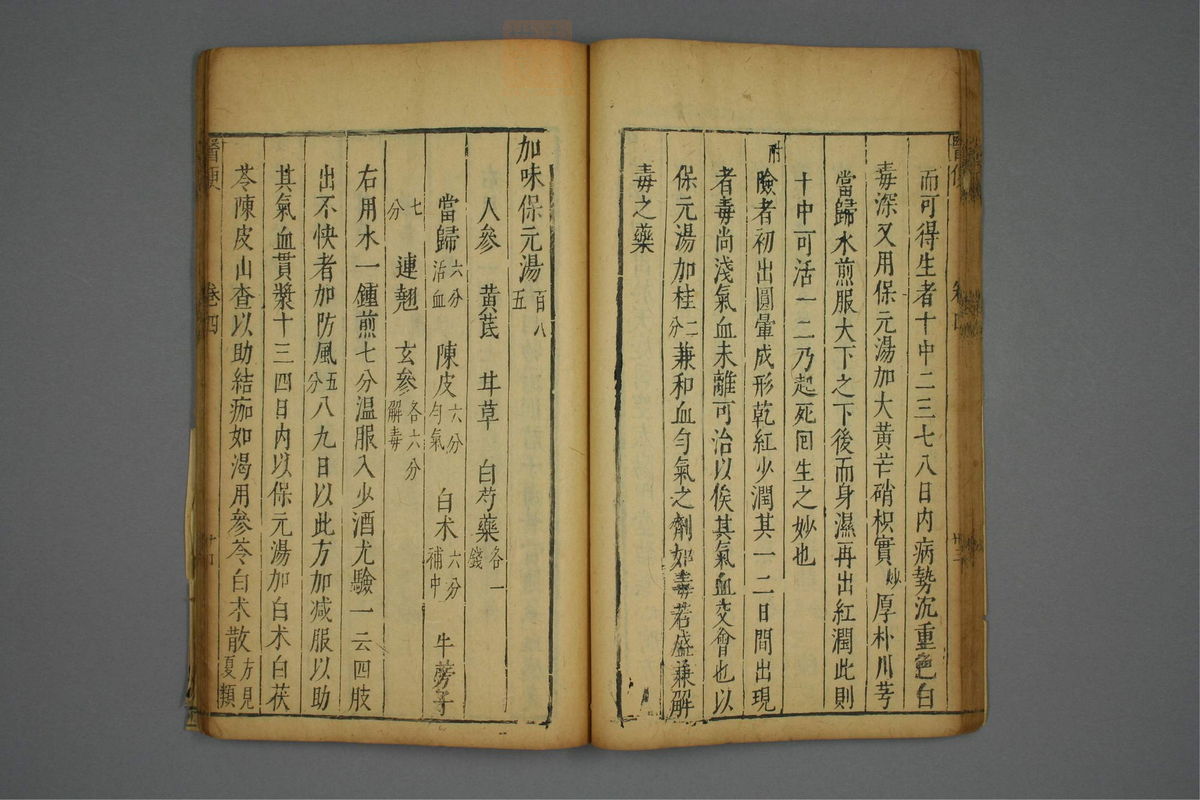 而可得生者十中二三七八日内病勢沉重色白
毒深又用保元湯加大黄芒硝枳實炒厚朴川芎
當歸水煎服大下之下後而身濕再出紅潤此則
十中可活一二乃起死囘生之妙也
附險者初出圓暈成形乾紅少潤其一二日間出現
者毒尚淺氣血未離可治以俟其氣血交會也以
保元湯加桂二分兼和血勻氣之劑如毒若盛兼解
毒之藥
加味保元湯百八五
人參一 黄芪二 甘草 白芍藥各一錢
當歸六分活血 陳皮六分勻氣 白术六分補中 牛蒡子
七分 連翹 玄參各六分解毒
右用水一鍾煎七分温服入少酒尤驗一云四肢
出不快者加防風五分八九日以此方加减服以助
其氣血貫漿十三四日内以保元湯加白术白茯
苓陳皮山查以助結痂如渴用參苓白术散方見夏類
卷四